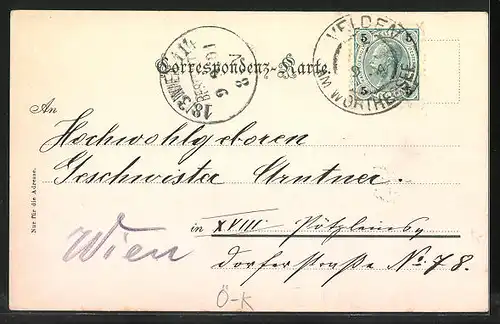 Correspondenz-Karte.
VELDEN
AM WÖRTHERSEE
5 5
5 5
18/3 WIEN 111
BESTELLT
9 8 01
8
An
Hochwohlgeboren
Geschwister Arntner.
in XVIII. Pötzleins,
dorferstraße No. 78.
Wien
Nur für die Adresse.
Ö-K